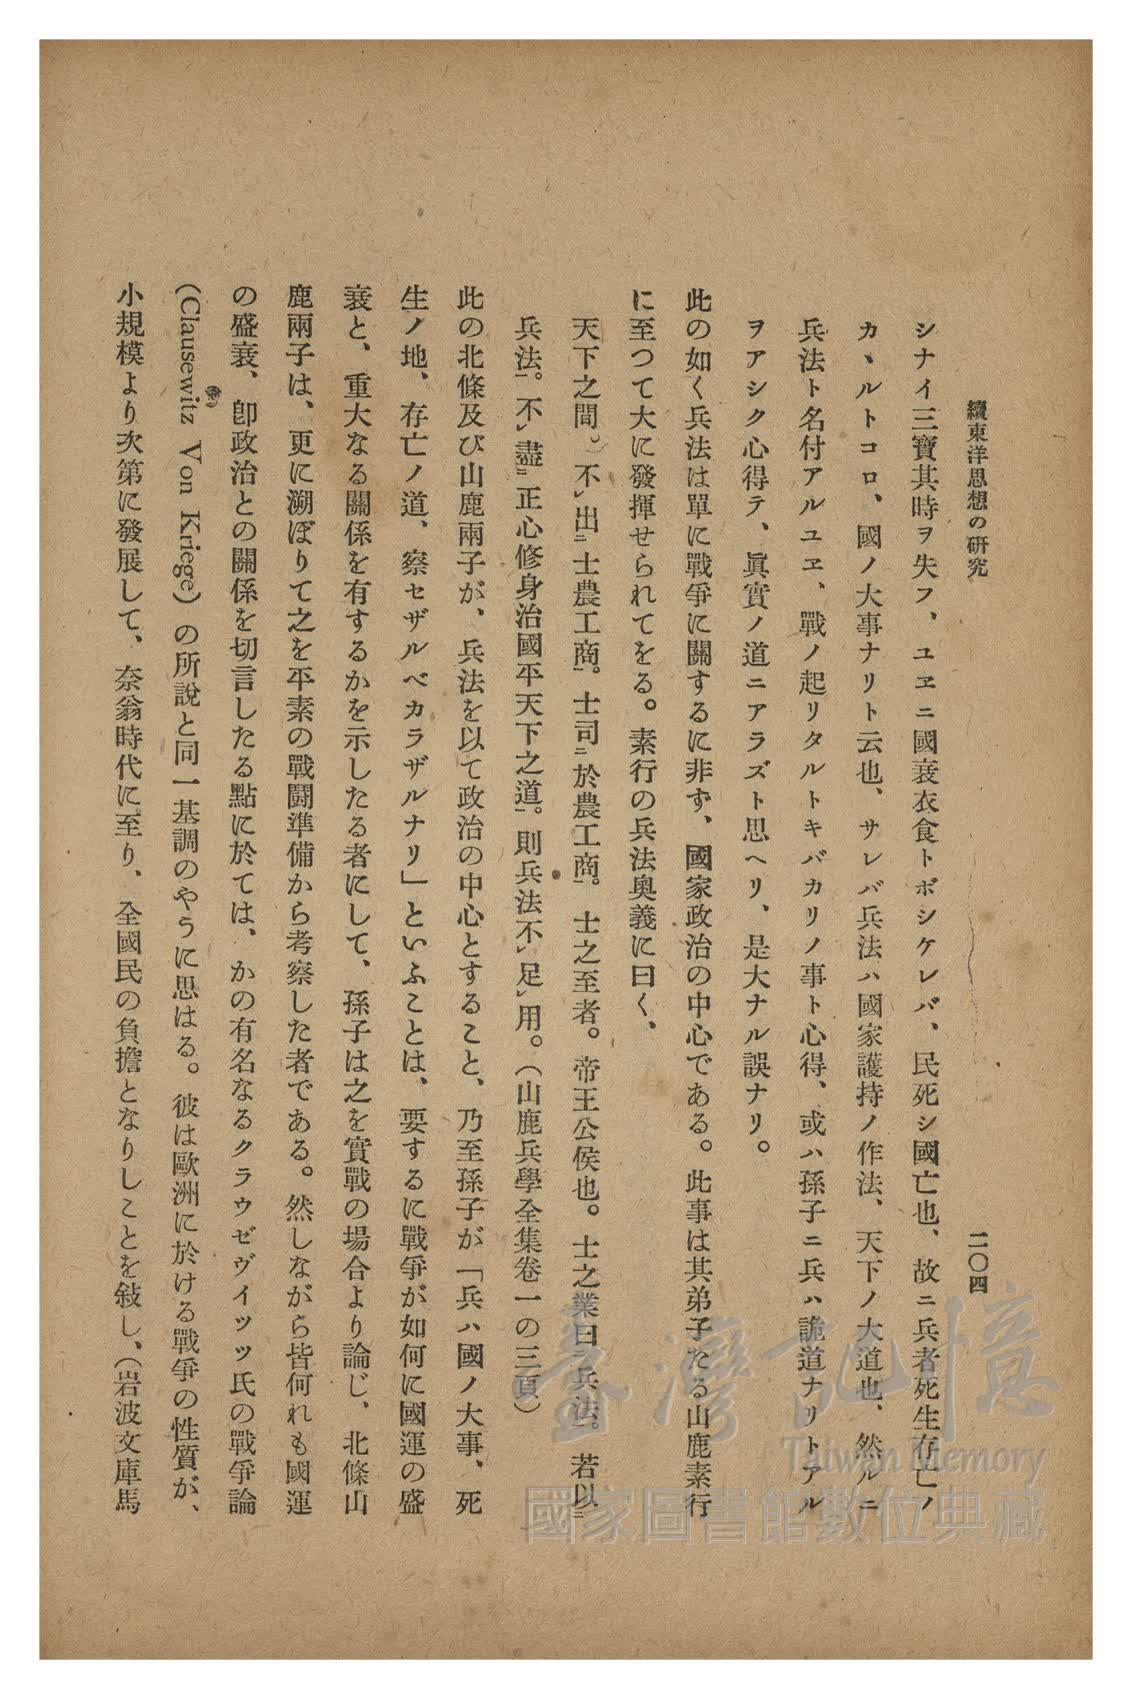 續東洋思想の研究
二〇四
シナイ三寶其時ヲ失フ、ユヱニ國衰衣食トボシケレバ、民死シ國亡也、故ニ兵者死生存亡ノ
カヽルトコロ、國ノ大事ナリト云也、サレバ兵法ハ國家護持ノ作法、天下ノ大道也、然ルニ
兵法ト名付アルユヱ、戰ノ起リタルトキバカリノ事ト心得、或ハ孫子ニ兵ハ詭道ナリトアル
ヲアシク心得テ、眞實ノ道ニアラズト思ヘリ、是大ナル誤ナリ。
此の如く兵法は單に戰爭に關するに非ず、國家政治の中心である。此事は其弟子たる山鹿素行
に至つて大に發揮せられてをる。素行の兵法奧義に曰く、
天下之間。不㆑出㆓士農工商㆒。士司㆓於農工商㆒。士之至者。帝王公侯也。士之業曰㆓兵法㆒。若以㆓
兵法㆒。不㆑盡㆓正心修身治國平天下之道㆒。則兵法不㆑足㆑用。（山鹿兵學全集卷一の三頁）
此の北條及び山鹿兩子が、兵法を以て政治の中心とすること、乃至孫子が「兵ハ國ノ大事、死
生ノ地、存亡ノ道、察セザルベカラザルナリ」といふことは、要するに戰爭が如何に國運の盛
衰と、重大なる關係を有するかを示したる者にして、孫子は之を實戰の場合より論じ、北條山
鹿兩子は、更に溯ぼりて之を平素の戰鬪準備から考察した者である。然しながら皆何れも國運
の盛衰、卽政治との關係を切言したる點に於ては、かの有名なるクラウゼヴイツツ氏の戰爭論
（Clausewitz Von Kriege）の所說と同一基調のやうに思はる。彼は歐洲に於ける戰爭の性質が、
小規模より次第に發展して、奈翁時代に至り、全國民の負擔となりしことを敍し、（岩波文庫馬
臺灣記憶
Taiwan Memory
國家圖書館數位典藏